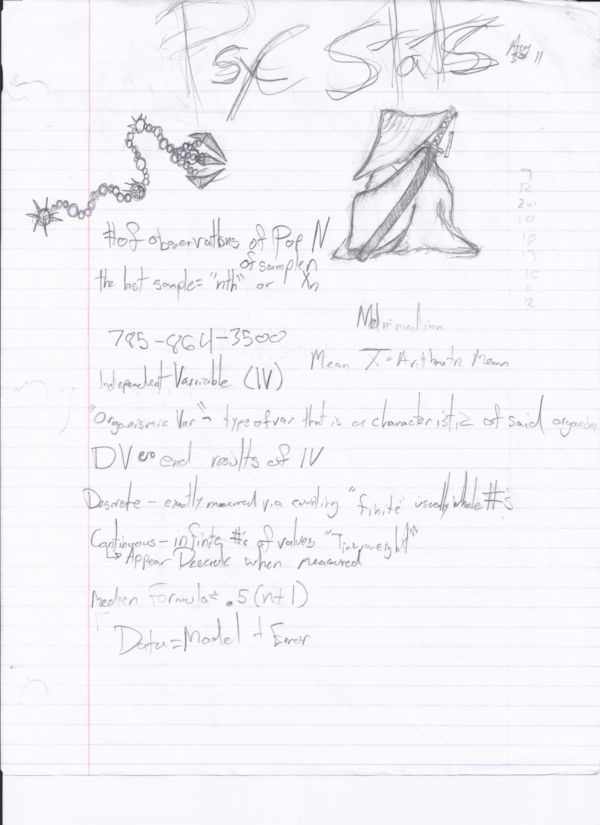 Psyc Stats
11
# of observations of Pop N
of sample n
the last sample = "nth" or Xn
Md = median
785-864-3500
Mean X̄ = Arithmetic Mean
Independent Varriable (IV)
"Organismic Var" - type of var that is a characteristic of said organism
DV end results of IV
Descrete - exactly measured via counting "finite" usually whole #'s
Continuous - infinite #'s of values "Time, weight"
↳ Appear Descrete when measured
Median Formula = .5(n+1)
Data = Model + Error
9
20
10
18
13
12